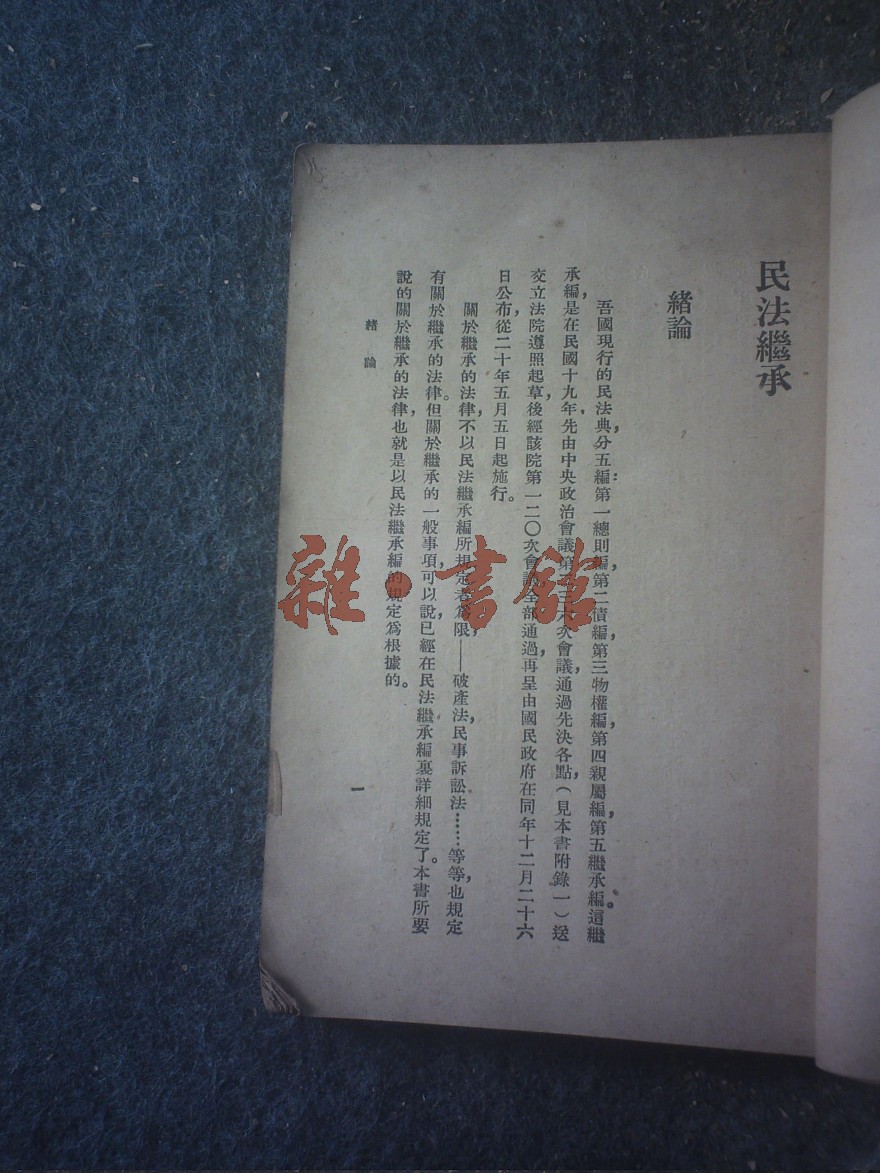 民法繼承
緒論
吾國現行的民法典，分五編：第一總則編，第二債編，第三物權編，第四親屬編，第五繼承編。這繼
承編，是在民國十九年，先由中央政治會議第二三六次會議，通過先決各點，（見本書附錄一）送
交立法院遵照起草，後經該院第一二〇次會議，全部通過，再呈由國民政府在同年十二月二十六
日公布，從二十年五月五日起施行。
關於繼承的法律，不以民法繼承編所規定者爲限，——破產法，民事訴訟法……等等，也規定
有關於繼承的法律。但關於繼承的一般事項，可以說，已經在民法繼承編裏詳細規定了。本書所要
說的關於繼承的法律，也就是以民法繼承編的規定爲根據的。
緒論
一
雜·書館